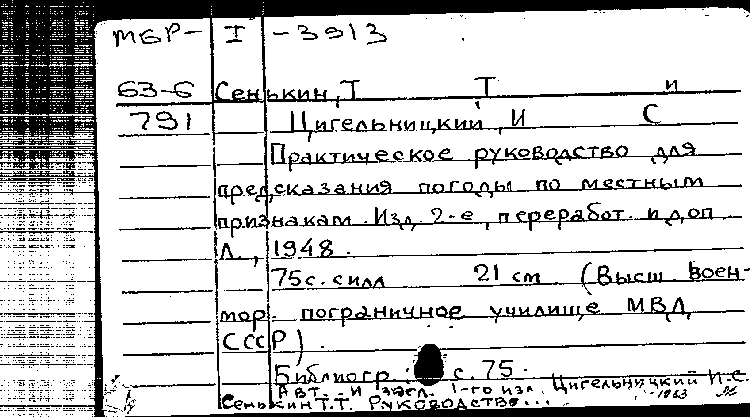 МБР- I -3913
63-6 Сенькин, Т Т и
791 Цигельницкий, И С
Практическое руководство для
предсказания погоды по местным
признакам. Изд. 2-е, переработ. и доп
Л., 1948.
75 с. с илл 21 см (Высш воен-
мор. пограничное училище МВД
СССР).
Библиогр.: с. 75.
Авт. и загл. 1-го изд. Цигельницкий И.С.
Сенькин Т.Т. Руководство... 1963